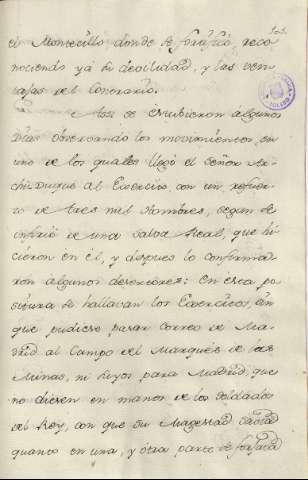 el Montecillo donde se fortificó, reco
nociendo yá su devilidad, y las ven
tajas del contrario.
Asi se estubieron algunos
Dias observando los movimientos, en
uno de los quales llegó el Señor Ar
chiDuque al Exercito, con un refuer
zo de tres mil hombres, segun se
infirió de una Salva Real, que hi
cieron en el, y despues lo confirma
ron algunos desertores: En esta po
situra se hallavan los Exercitos, sin
que pudiese pasar correo de Ma
drid al Campo del Marqués de las
Minas, ni suyos para Madrid, que
no diesen en manos de los Soldados
del Rey, con que su Magestad savia
quanto en una, y otra parte se